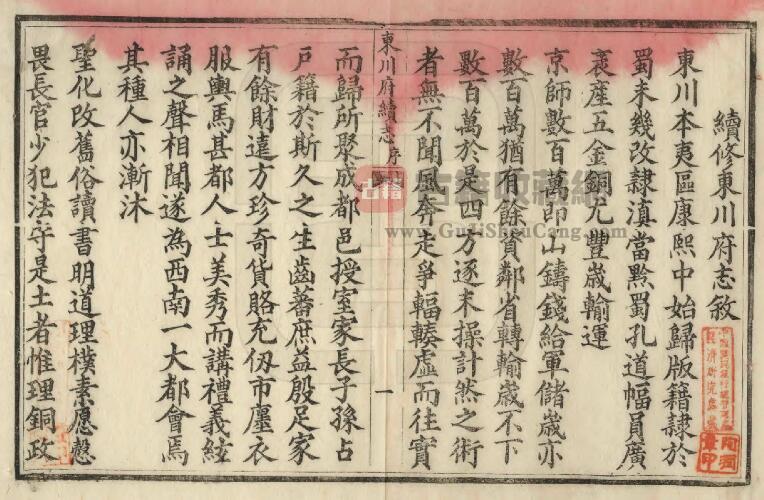 續修東川府志敘
東川本夷區康熙中始歸版籍隷於
蜀未幾改隷滇當黔蜀孔道幅員廣
袤產五金銅尤豐歲輸運
京師數百萬即山鑄錢給軍儲歲亦
數百萬猶有餘資鄰省轉輸歲不下
數百萬於是四方逐末操計然之術
者無不聞風奔走爭輻輳虛而往實
東川府續志
序
一
而歸所聚成都邑授室家長子孫占
戸籍於斯久之生齒蕃庶益殷足家
有餘財遠方珍奇貨賂充仞市廛衣
服輿馬甚都人士美秀而講禮義絃
誦之聲相聞遂為西南一大都會焉
其種人亦漸沐
聖化改舊俗讀書明道理樸素愿慤
畏長官少犯法守是土者惟理銅政
古籍
古籍收藏網
www.GuJiShouCang.com